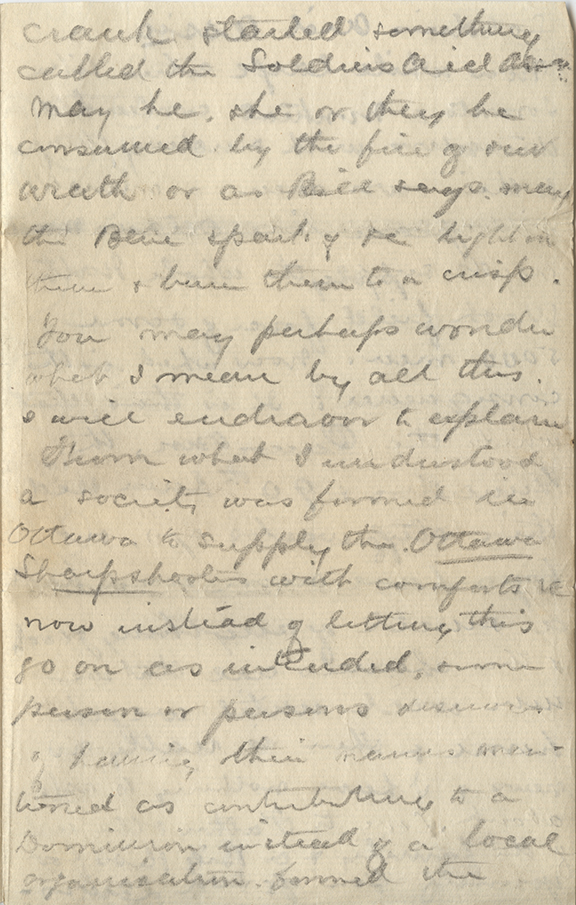 crank started something
called the Soldiers Aid Assn.
May he, she or they be
consumed by the fire of our
wrath or as Bill says may
the Blue spark, &c light on
them & burn them to a crisp.
You may perhaps wonder
what I mean by all this.
I will endeavor to explain
From what I understood
a society was formed in
Ottawa to supply the Ottawa
Sharpshooters with comforts &c
now instead of letting this
go on as intended, some
person or persons desirous
of having their names men-
tioned as contributing to a
Dominion instead of a local
organization formed the